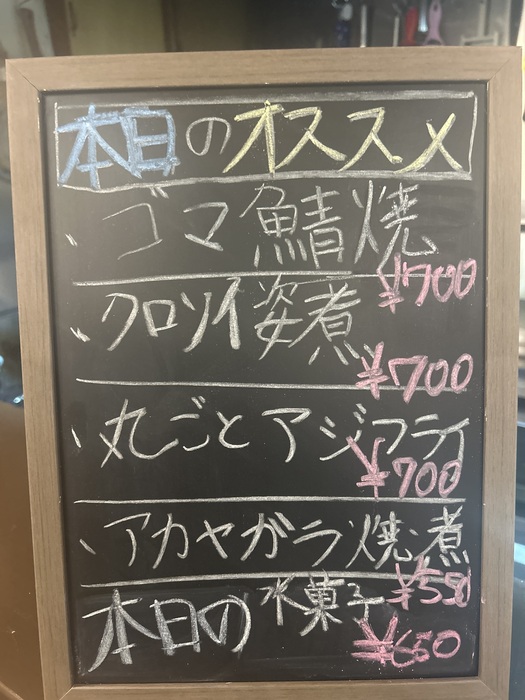 本日のオススメ
、ゴマ鯖焼
¥700
、クロソイ姿煮
¥700
、丸ごとアジフライ
¥700
、アカヤガラ焼・煮
¥550
本日の水菓子
¥650